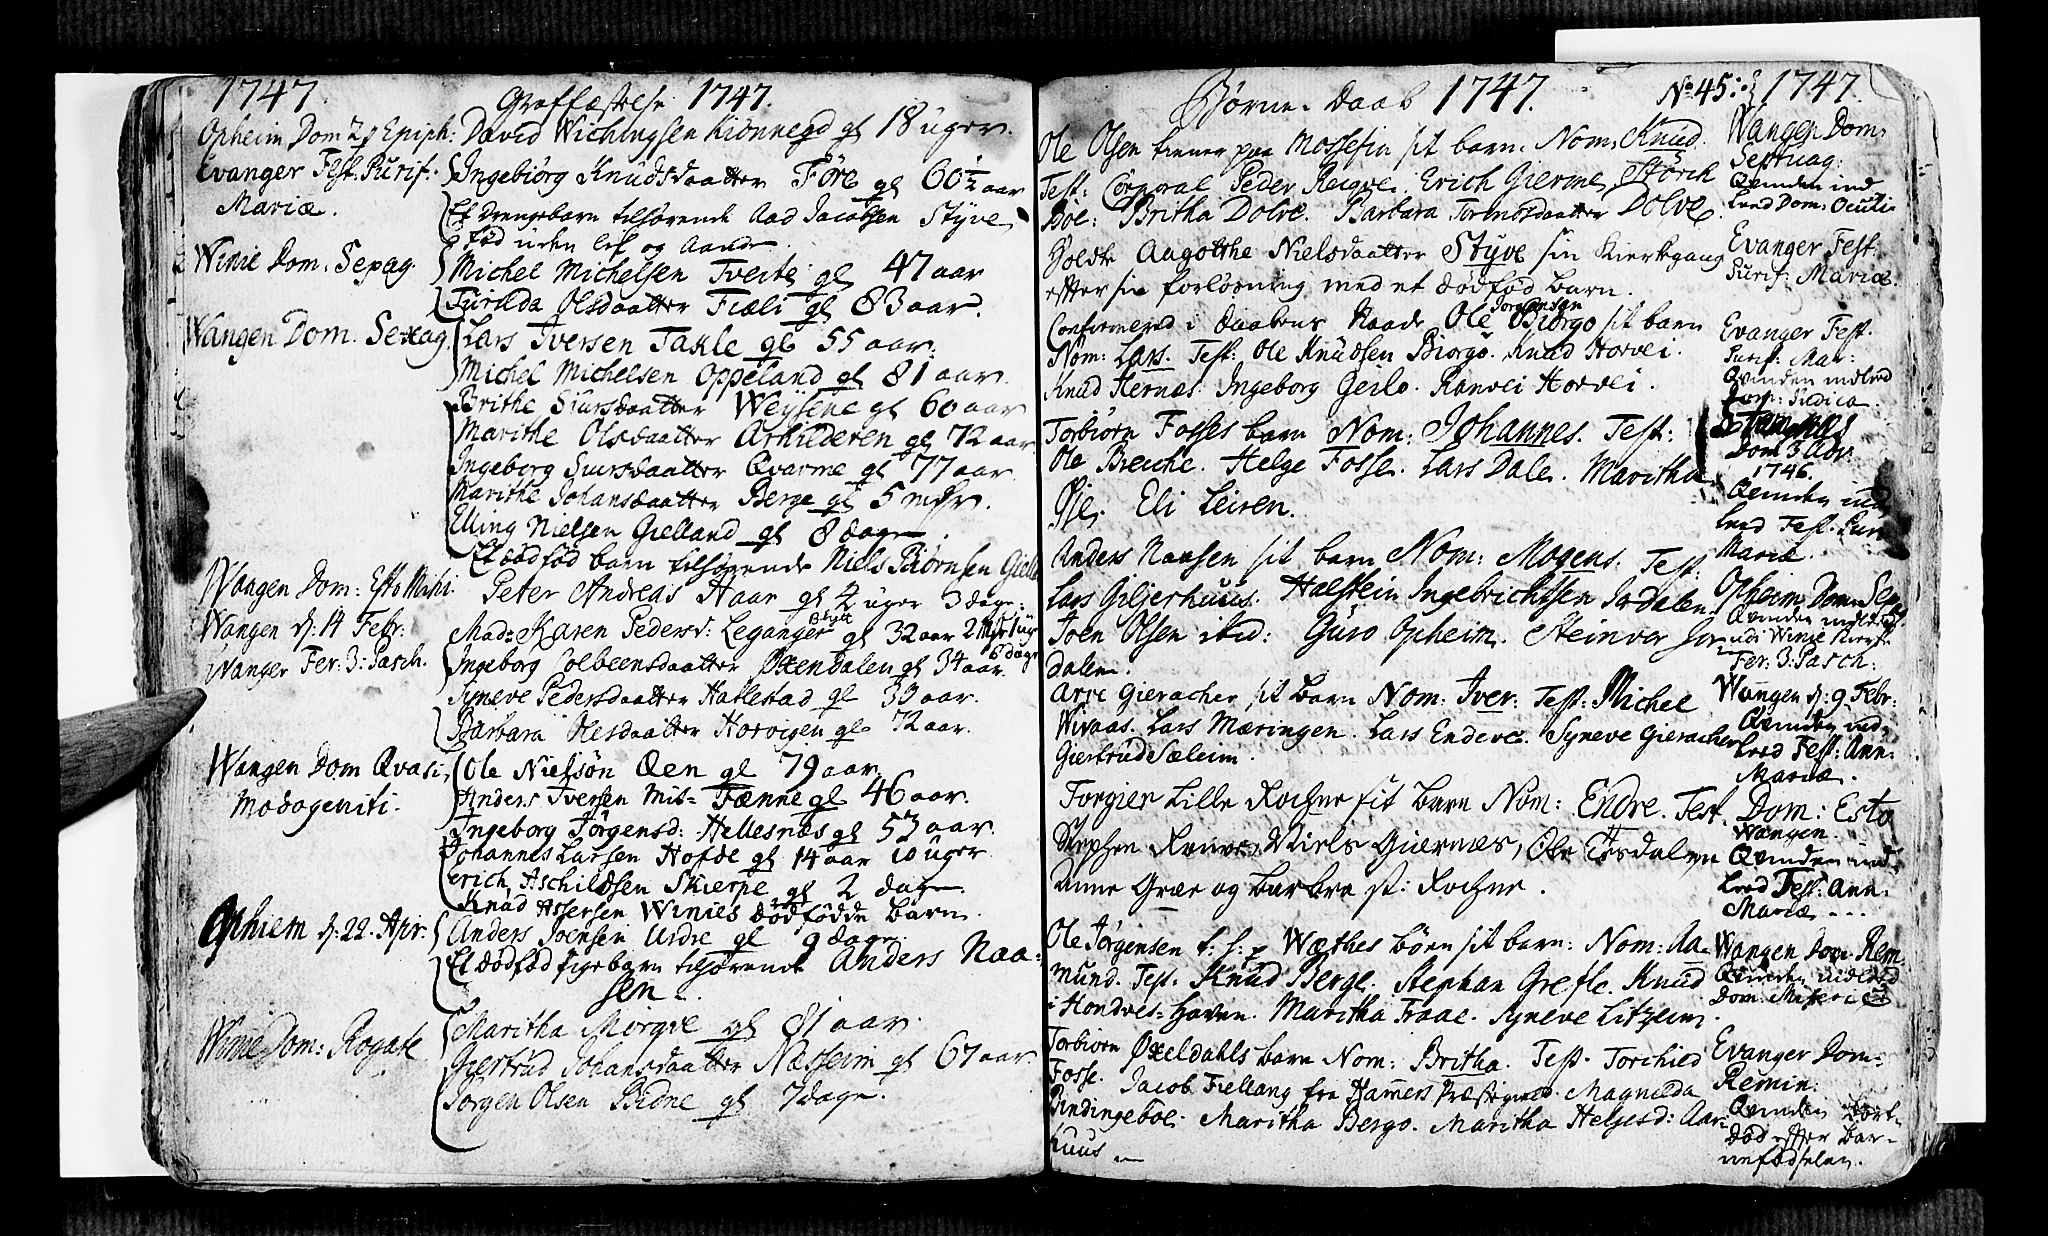 1747. Graffæstelse 1747.
Opheim Dom 2 p Epiph: David Wichingsen Kiönnegd gl 18 uger.
Evanger Fest. Purif. Ingebiörg Knudsdaatter Före gl 60 1/2 aar
Mariæ. Et drengebarn tilhörende Aad Jacobsen Styve
föd uden lif og Aande.
Winie Dom. Sexag. Michel Michelsen Tveite gl 47 aar
Turilda Olsdaatter Fiæli gl 83 aar.
Wangen Dom. Sexag. Lars Iversen Takle gl 55 aar.
Michel Michelsen Oppeland gl 81 aar.
Brithe Siursdaatter Weysene gl 60 aar
Marithe Olsdaatter Arhilderen gl 72 aar
Ingeborg Siursdaatter Qvarme gl 77 aar.
Marithe Johansdaatter Berge gl 5 mdr.
Elling Nielsen Gielland gl 8 dage.
Et dödföd barn tilhörende Niels Biörnsen Gielle
Wangen Dom: Esto Mihi. Peter Andreas Haar gl 2 uger 3 dage.
Wangen d: 14 Febr: Mad: Karen Pedersd: Leganger Blytt gl 32 aar 2 Mdr 1 uge
6 dage
Evanger Fer: 3: Pasch. Ingeborg Colbeensdaatter Oxendalen gl 34 aar.
Syneve Pedersdaatter Hallestad gl 30 aar.
Barbara Olesdaatter Horvigen gl 72 aar.
Wangen Dom Qvasi, Ole Nielsön Qen gl 79 aar.
modogeniti. Anders Iversen Mit= Fenne gl 46 aar.
Ingeborg Jörgensd: Hellesnæs gl 53 aar.
Johannes Larsen Hofde gl 14 aar 10 uger
Erich Aschildsen Skierpe gl 2 dage.
Knud Assersen Winies dödfödde barn.
Ophiem d: 22. Apr. Anders Joensen Urdre gl 9 dage.
Et dödföd pigebarn tilhörende Anders Naa=
sen.
Winie Dom: Rogate Maritha Mörgve gl 81 aar.
Giertrud Johansdaatter Næsheim gl 67 aar
Jörgen Olsen Bidne gl 7 dage.
Börne Daab 1747. No 45: 1747.
Ole Olsen tiener paa Mossefin sit barn. Nom: Knud.
Test: Corporal Peder Recqve. Erich Gierme, Störck
Böe: Britha Dolve. Barbara Tormosdaatter Dolve.
Wangen Dom.
Septuag:
Qvinden ind
leed Dom: Oculi
Holdt Aagotthe Nielsdaatter Styve sin Kierkegang
efter sin forlösning med et dödföd barn.
Evanger Fest:
Purif: Mariæ.
Confirmered i daabens Naade Ole Jorgensen Biörgo sit barn
Nom: Lars. Test: Ole Knudsen Biorgo. Knud Horvei.
Knud Hernæs. Ingeborg Geilo. Ranvei Horvei.
Evanger Fest.
Purif: Mar:
Qvinden indleed
Dom: Judica.
Torbiörn Fosses barn Nom: Johannes. Test:
Ole Breiche. Helge Fosse. Lars Dale. Maritha
Öie. Eli Leiren.
Stamnes
Dom 3 Adv:
1746.
Qvinden ind
leed Fest. Pur
Mariæ.
Anders Naasen sit barn Nom: Mogens. Test:
Lars Giljerhuus. Halstein Ingebrichtsen Jordalen
Joen Olsen ibid: Guro Opheim. Steinvor Jor=
dalen.
Opheim Dom. Sep
Qvinden indleed
udi Winie Kierk
Fer: 3: Pasch:
Arve Gieracher sit barn Nom: Iver. Test: Michel
Wivaas. Lars Mæringen. Lars Endeve. Syneve Gieracher
Giertrud Sæleim.
Wangen d: 9 Febr:
Qvinden ind=
leed Fest: Ann:
Mariæ.
Torgier Lille Rochne sit barn Nom: Endre. Test.
Stephen Rene, Niels Giernes, Ole Torsdalen
Anne Græe og Barbra st: Rochne.
Dom: Esto
Wangen.
Qvinden ind=
leed Fest: Ann:
Mariæ ...
Ole Jörgensen f: s: p Wæthes börn sit barn: Nom: Aa=
mund. Test. Knud Berge. Stephan Grefle. Knud
i Hondves=haven. Maritha Traae. Syneve Litzeim.
Wangen Dom. Rem.
Qvinden indleed
Dom. Misericord
Torbiorn Oxeldahls barn Nom: Britha. Test. Torchild
Fosse. Jacob Fiellang fra Hamers Præstegield. Magnilda
Bindingeboe. Maritha Bergo. Maritha Helgesd: Aar=
huus.
Evanger Dom=
Remin:
Qvinden bort=
död efter bar=
nefödselen.